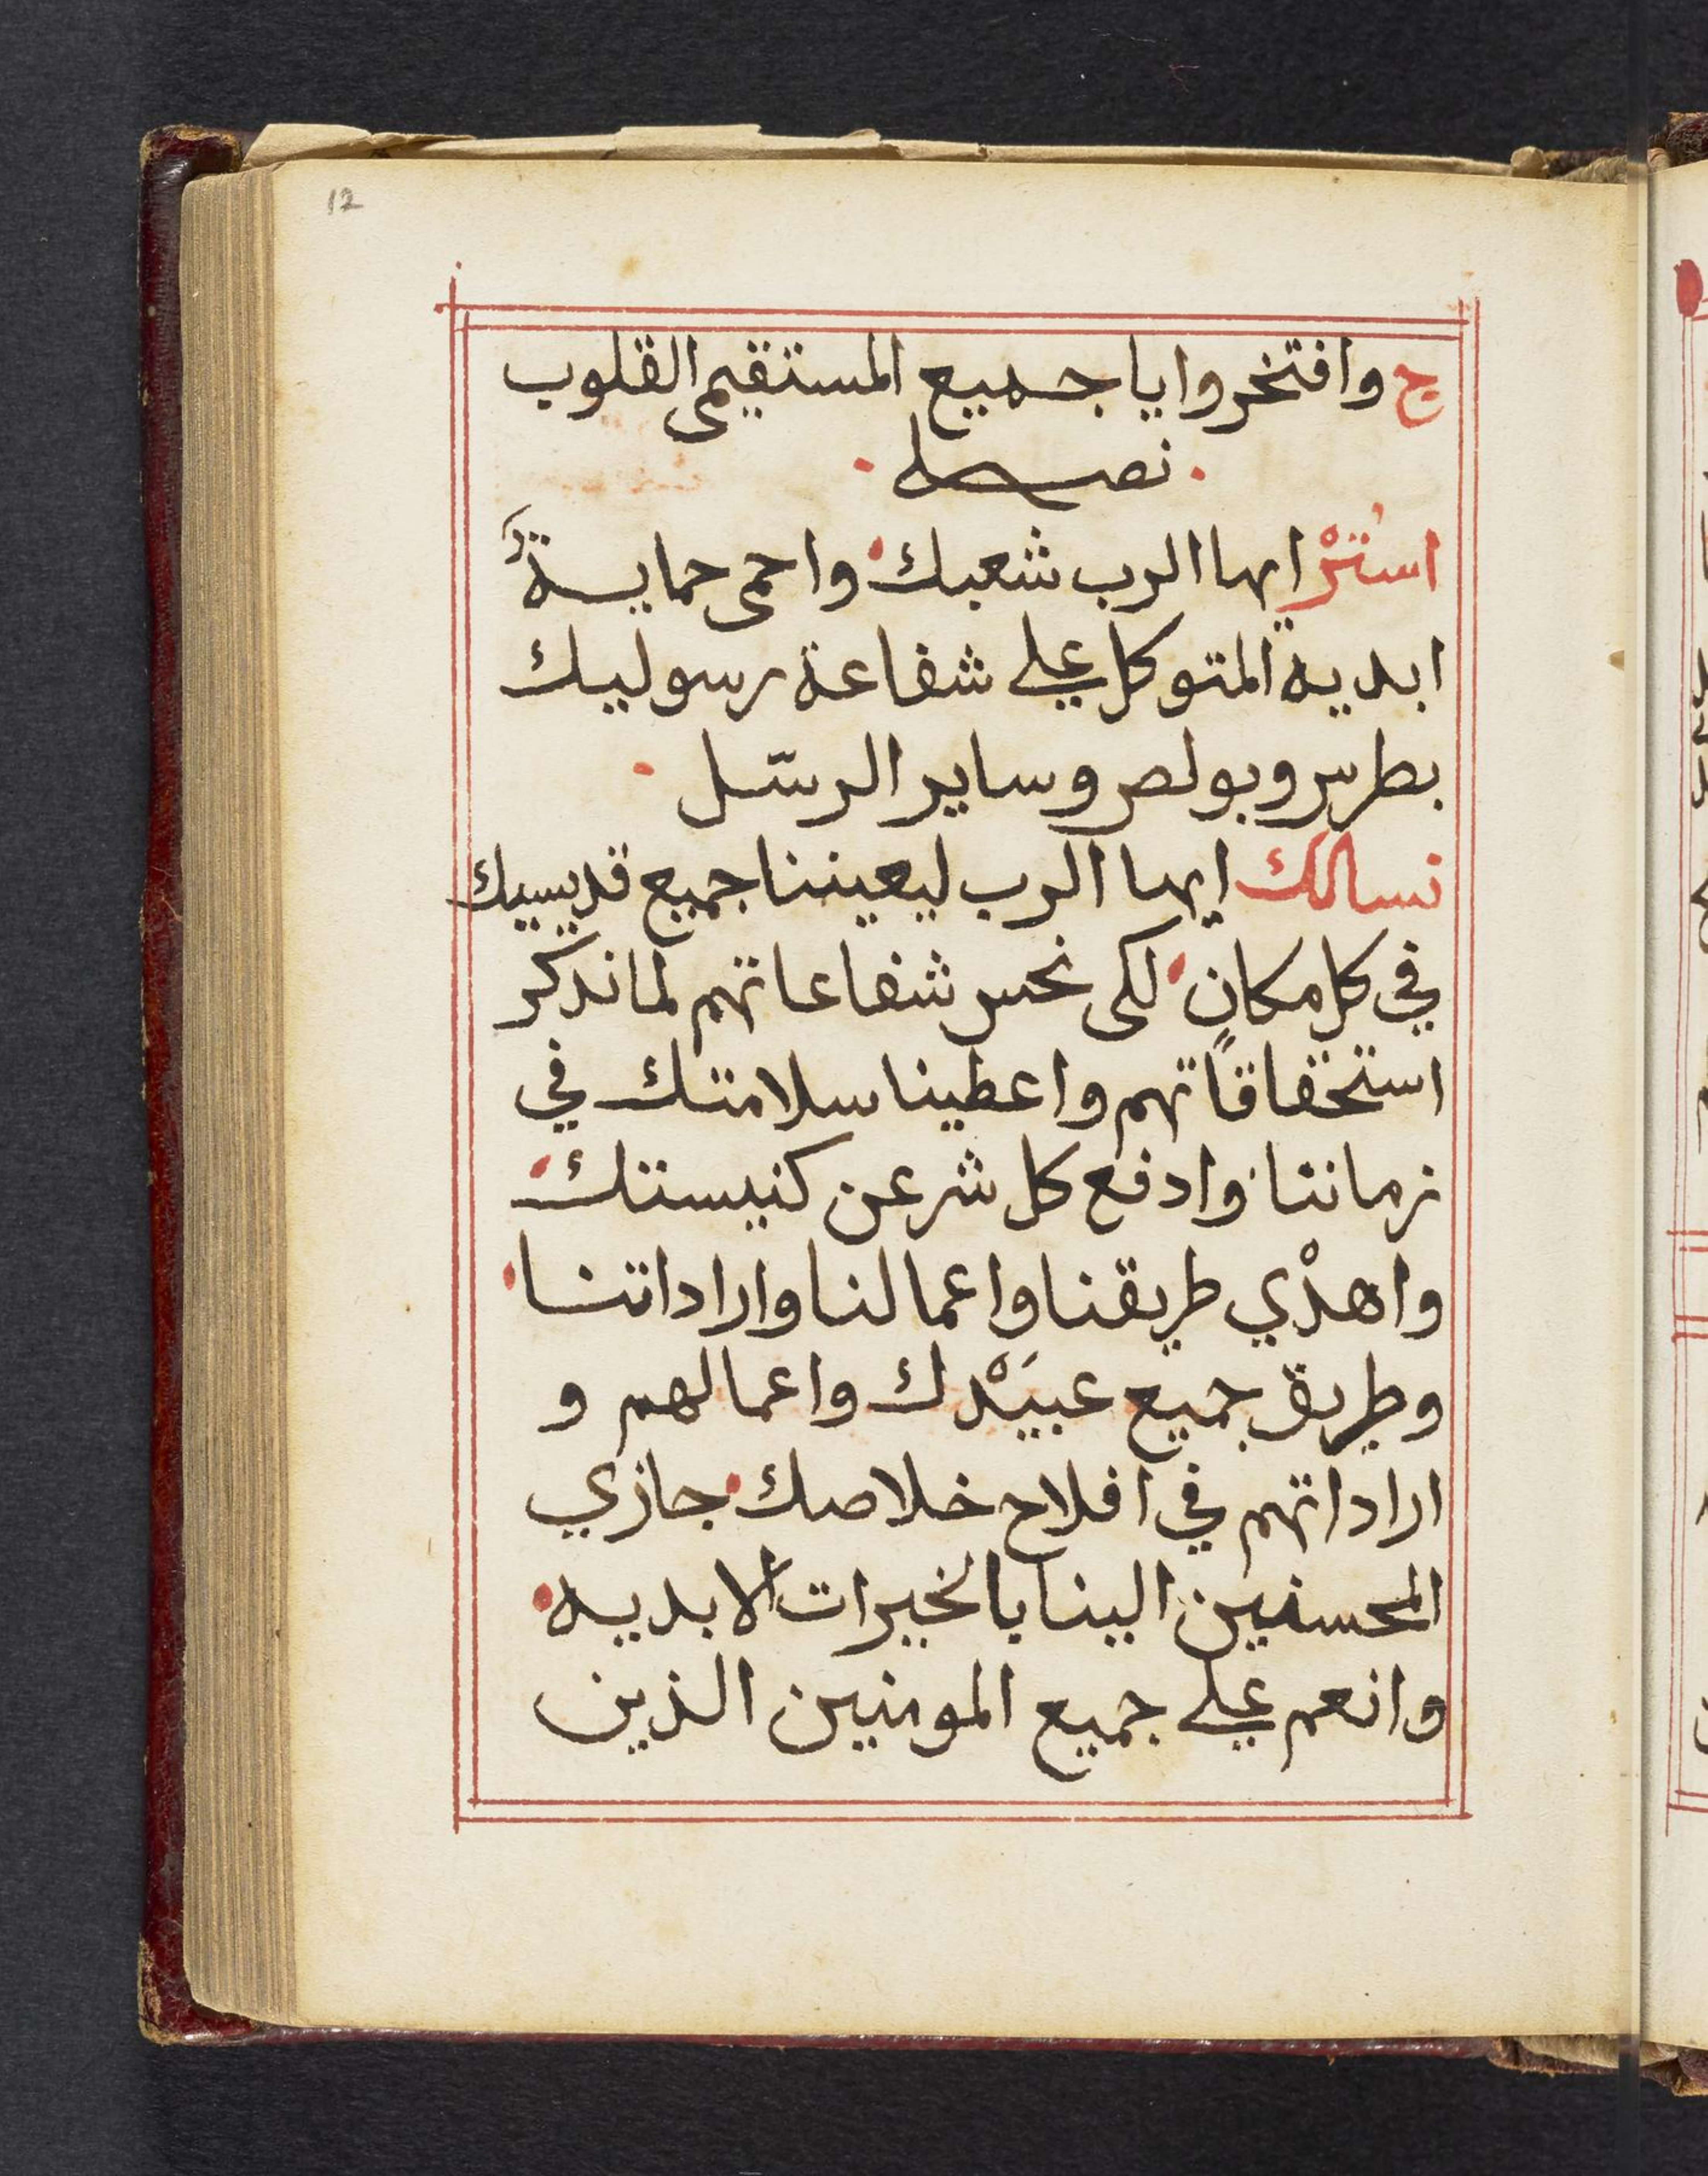 12
ج وافتخروا يا جميع المستقيمى القلوب
نصله
استُرْ ايها الرب شعبك واحمى حمايةً
ابدية المتوكل علي شفاعة رسوليك
بطرس وبولص وساير الرسّل
نسالك ايها الرب ليعيننا جميع قديسيك
في كل مكان لكى نحس شفاعاتهم لما ندكر
استحقاقاتهم واعطينا سلامتك في
زماننا وادفع كل شر عن كنيستك
واهدْي طريقنا واعمالنا واراداتنا
وطريق جميع عبيَدْك واعمالهم و
اراداتهم في افلاح خلاصك جازي
المحسنين الينا بالخيرات الابديه
وانعم علي جميع المومنين الذين